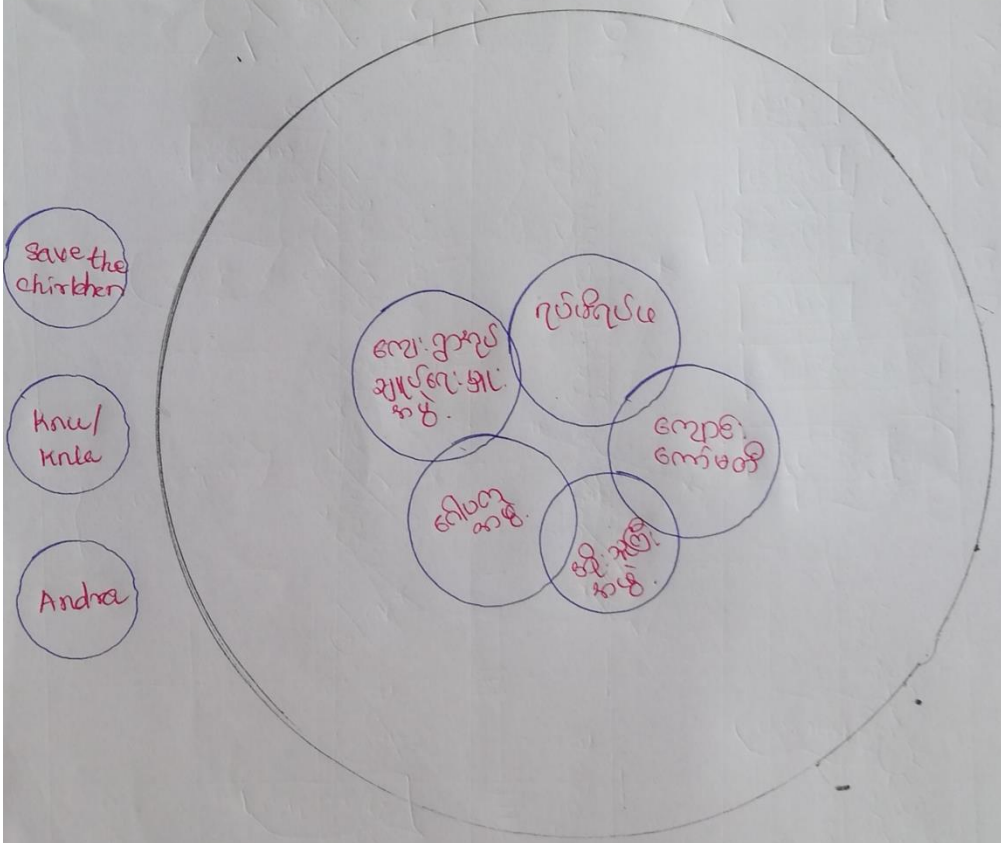 Save the
chirlchen
Knu/
Knla
Andra
ကျေး ရွာအုပ်
ချုပ်ရေးမှုး
အဖွဲ့.
ရပ်မိရပ်ဖ
ကျောင်း
ကော်မတီ
ဂေါပက
အဖွဲ့.
အဖွဲ့.